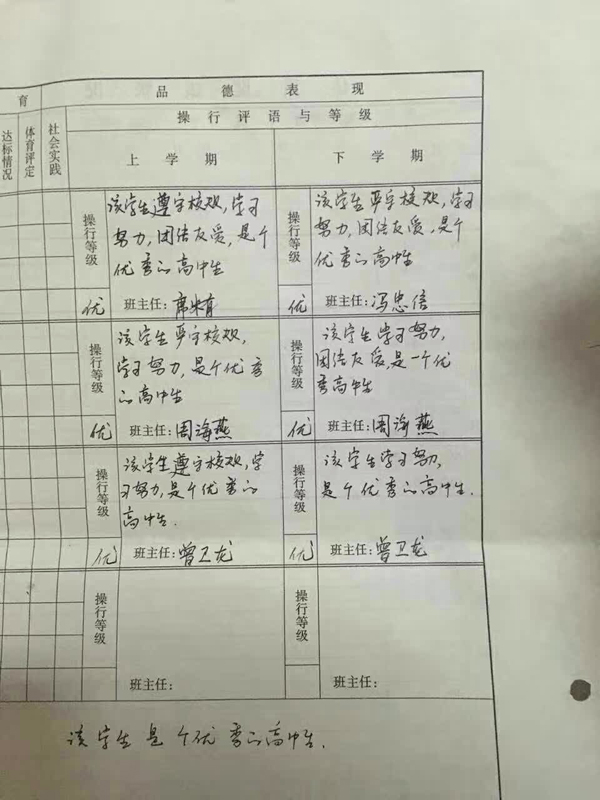 育 品德表现
操行评语与等级
达标情况 体育评定 社会实践 上学期 下学期
操行等级 优
该学生遵守校规,学习
努力,团结友爱,是个
优秀的高中生
班主任:
操行等级 优
该学生严守校规,学习
努力,团结友爱,是个
优秀的高中生
班主任:冯忠信
操行等级 优
该学生严守校规,
学习努力,是个优秀
的高中生
班主任:周海燕
操行等级 优
该学生学习努力,
团结友爱,是一个优
秀高中生
班主任:周海燕
操行等级 优
该学生遵守校规,学
习努力,是个优秀的
高中生.
班主任:曾卫龙
操行等级 优
该学生学习努力,
是个优秀的高中生.
班主任:曾卫龙
操行等级
班主任:
操行等级
班主任:
该学生是个优秀的高中生.